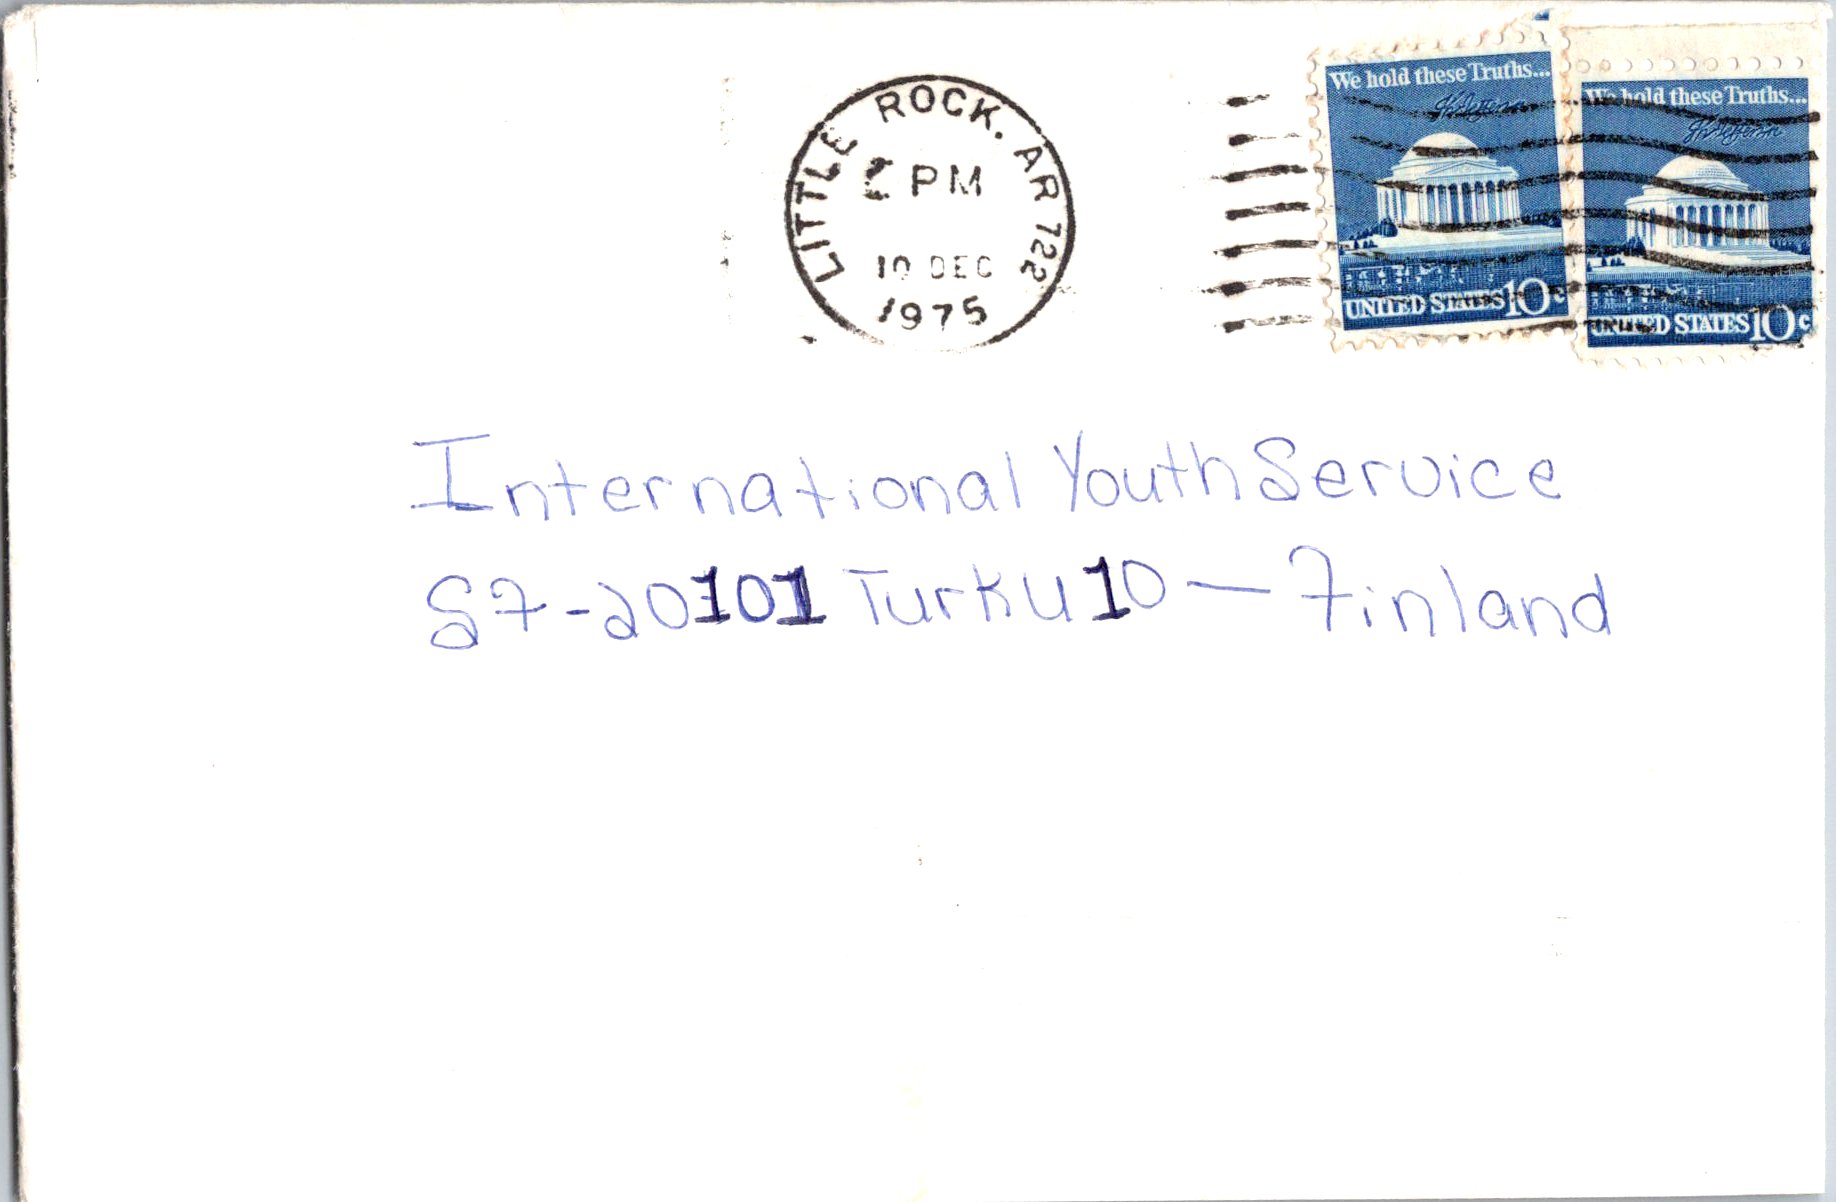 LITTLE ROCK. AR 722
PM
10 DEC
1975
We hold these Truths...
Th Jefferson
UNITED STATES 10c
We hold these Truths...
Th Jefferson
UNITED STATES 10c
International Youth Service
SF-20101 Turku 10 — Finland